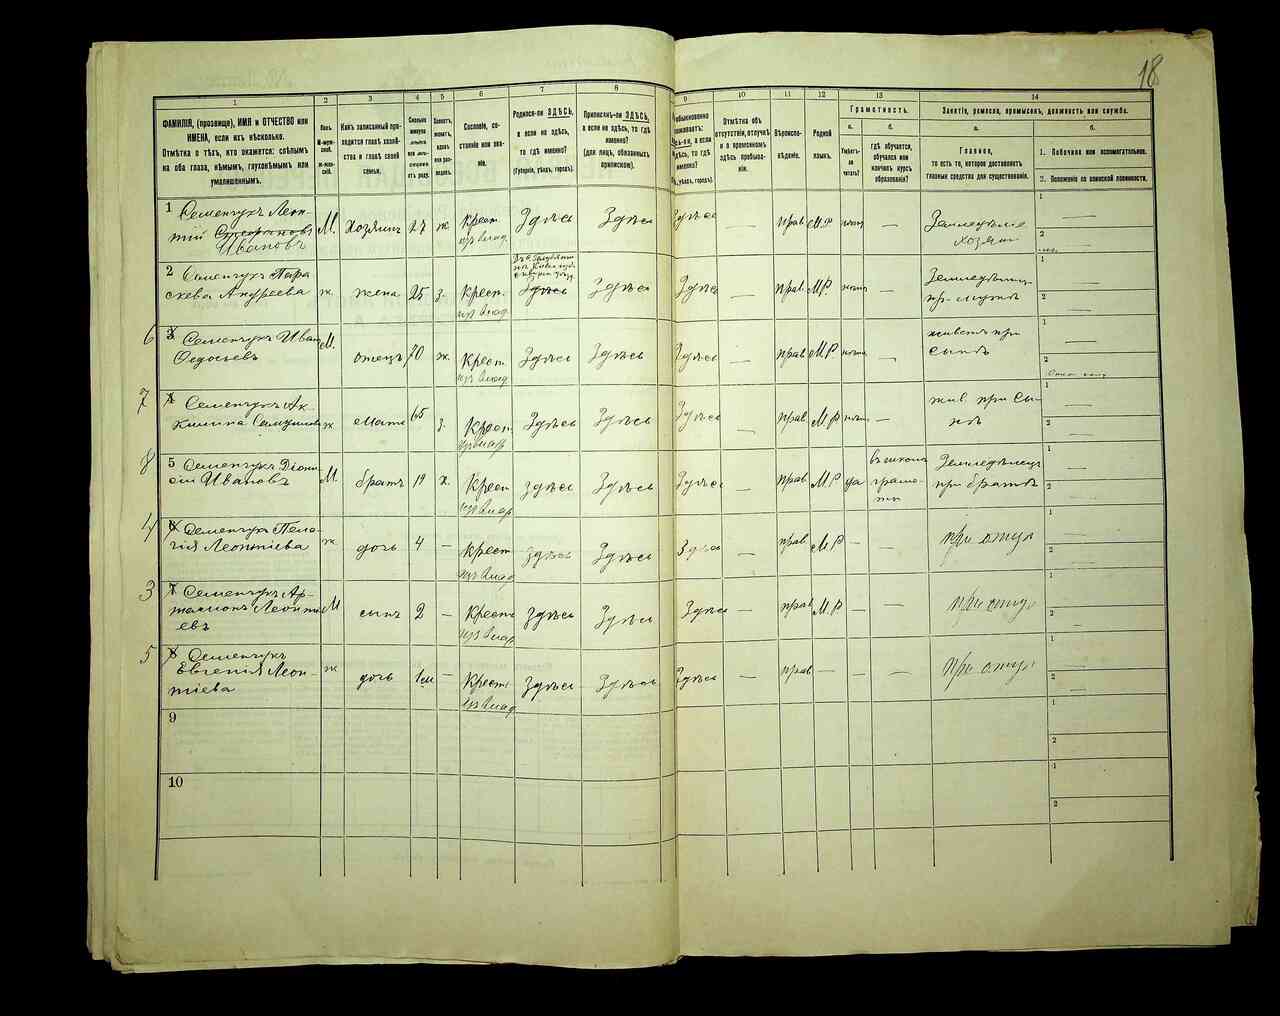 18
1 2 3 4 5 6 7 8 9 10 11 12 13 14
ФАМИЛІЯ, (прозвище), ИМЯ и ОТЧЕСТВО или
ИМЕНА, если ихъ нѣсколько.
Отмѣтка о тѣхъ, кто окажется: слѣпымъ
на оба глаза, нѣмымъ, глухонѣмымъ или
умалишеннымъ.
Полъ.
М-муж-
ской.
Ж-жен-
скій.
Какъ записанный при-
ходится главѣ хозяй-
ства и главѣ своей
семьи.
Сколько
минуло
лѣтъ
отъ роду.
Холостъ,
женатъ,
вдовъ
или раз-
веденъ.
Сословіе, со-
стояніе или зва-
ніе.
Родился-ли ЗДѢСЬ,
а если не здѣсь,
то гдѣ именно?
(Губернія, уѣздъ, городъ).
Приписанъ-ли ЗДѢСЬ,
а если не здѣсь, то гдѣ
именно?
(для лицъ, обязанныхъ
припискою).
а если
здѣсь, то гдѣ
именно?
уѣздъ, городъ).
Отмѣтка объ
отсутствіи, отлучкѣ
и о временномъ
здѣсь пребыва-
ніи.
Вѣроиспо-
вѣданіе.
Родной
языкъ.
Грамотность.
а. б.
Умѣетъ-ли
читать?
гдѣ обучается,
обучался или
кончилъ курсъ
образованія?
Занятіе, ремесло, промыселъ, должность или служба.
а. б.
Главное,
то есть то, которое доставляетъ
главныя средства для существованія.
1. Побочное или вспомогательное.
2. Положеніе по воинской повинности.
1 Семенчукъ Леон-
тій Ивановъ М. Хозяинъ 27 ж. Крест. изъ влад. Здѣсь Здѣсь Здѣсь прав М.Р. Земледѣліе хозяин —
2 Семенчукъ Пара-
скева Андреева ж. жена 25 з. Крест. изъ влад. Здѣсь Здѣсь Здѣсь — прав М.Р. — Земледѣлиц. пр. мужѣ —
6 3 Семенчукъ Иван
Федосьевъ М. отецъ 70 ж. Крест. изъ влад. Здѣсь Здѣсь Здѣсь — прав М.Р — живетъ при сынѣ —
7 4 Семенчукъ Ак-
ж мать 65 з. Крест. изъ влад Здѣсь Здѣсь Здѣсь — прав М.Р — жив. при сы-нѣ —
8 5 Семенчукъ Діони-
сій Ивановъ М братъ 19 х. Крест изъ влад здѣсь Здѣсь Здѣсь — прав М.Р да въ школ грамо-ты Земледѣлец при братѣ —
4 6 Семенчукъ Пела-
гія Леонтіева ж дочь 4 — Крест изъ влад здѣсь Здѣсь Здѣсь — прав М.Р — — при отцѣ —
3 7 Семенчукъ Ар-
тамонъ Леонті-
евъ М сынъ 2 — Крест изъ влад здѣсь Здѣсь Здѣсь — прав М.Р — — при отцѣ —
5 8 Семенчукъ
Евгенія Леон-
тіева ж дочь 1м — Крест изъ влад здѣсь Здѣсь Здѣсь — прав — — — при отцѣ —
9
10